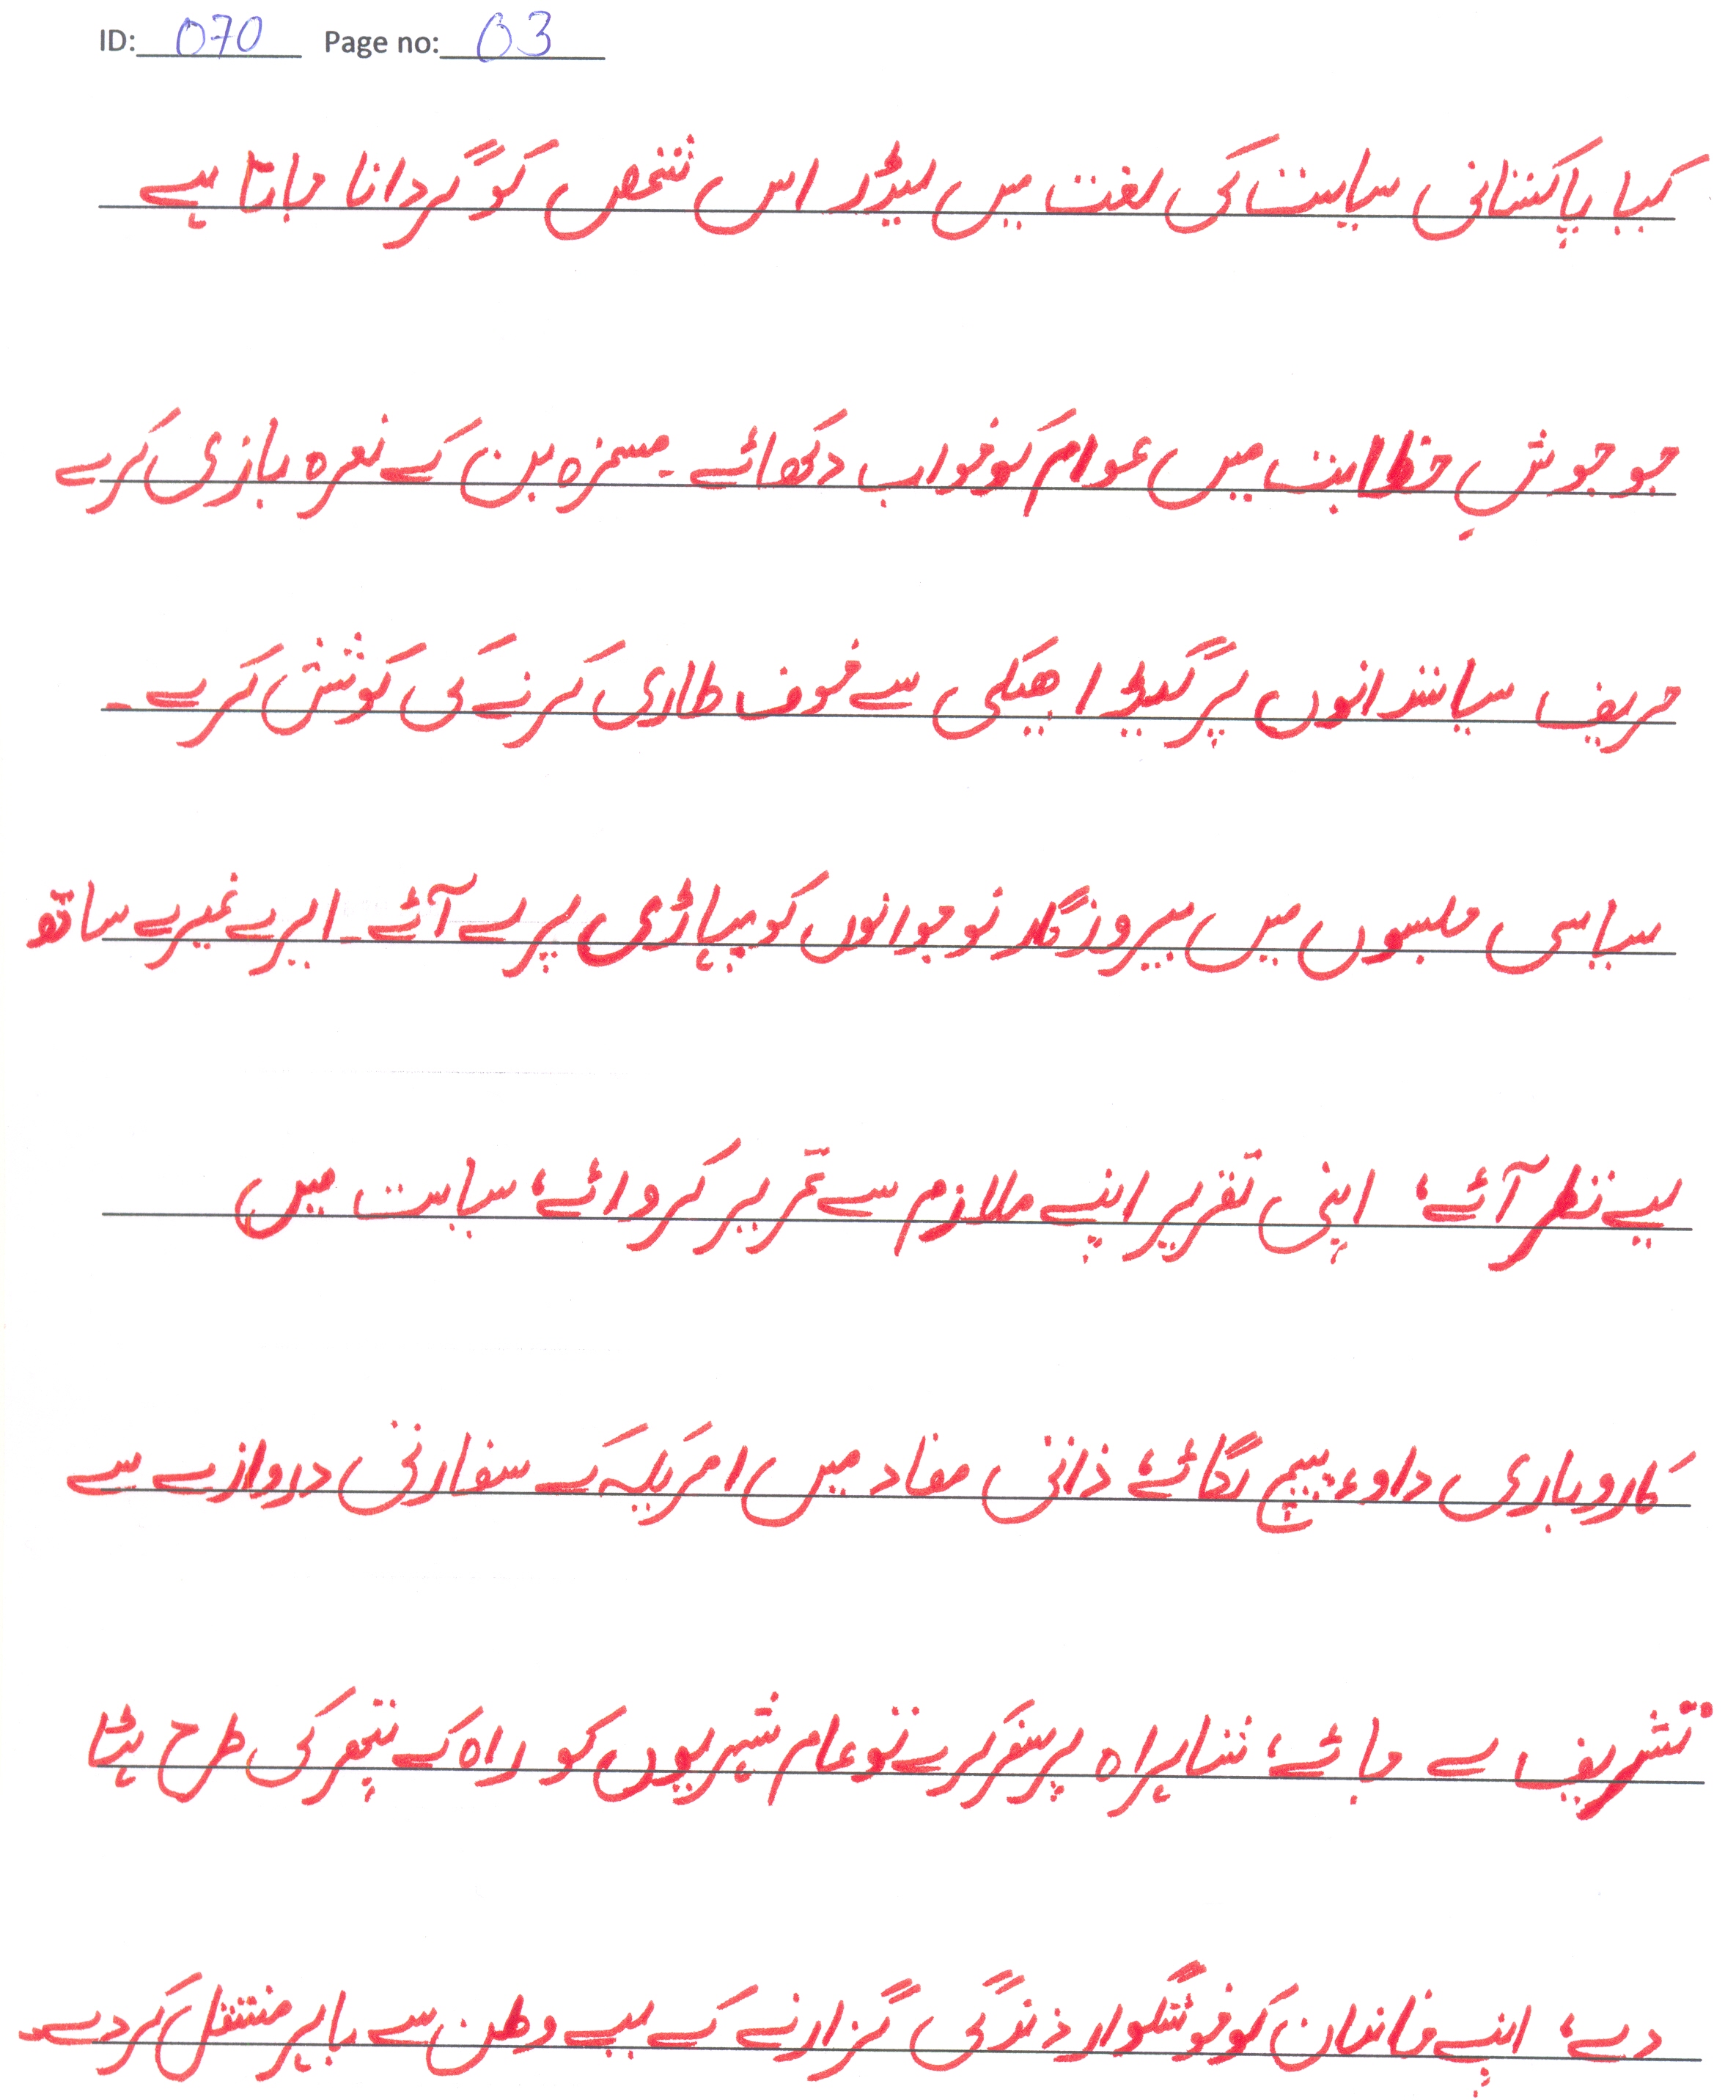 ID: 070 Page no: 03
کیا پاکستانی سیاست کی لغت میں لیڈر اس شخص کو گردانا جاتا ہے
جو جوشِ خطابت میں عوام کو خواب دکھائے۔ مسخرہ بن کے نعرہ بازی کرے
حریف سیاستدانوں پر گیدڑ بھبکی سے خوف طاری کرنے کی کوشش کرے۔
سیاسی جلسوں میں بیروزگار نوجوانوں کو دیہاڑی پر لے آئے۔ ایرے غیرے ساتھ
لیے نظر آئے، اپنی تقریر اپنے ملازم سے تحریر کروائے، سیاست میں
کاروباری داوء پیچ لگائے، ذاتی مفاد میں امریکہ کے سفارتی دروازے سے
تشریف لے جائے، شاہراہ پر سفر کرے تو عام شہریوں کو راہ کے پتھر کی طرح ہٹا
دے، اپنے خاندان کو خوشگوار زندگی گزارنے کے لیے وطن سے باہر منتقل کردے۔